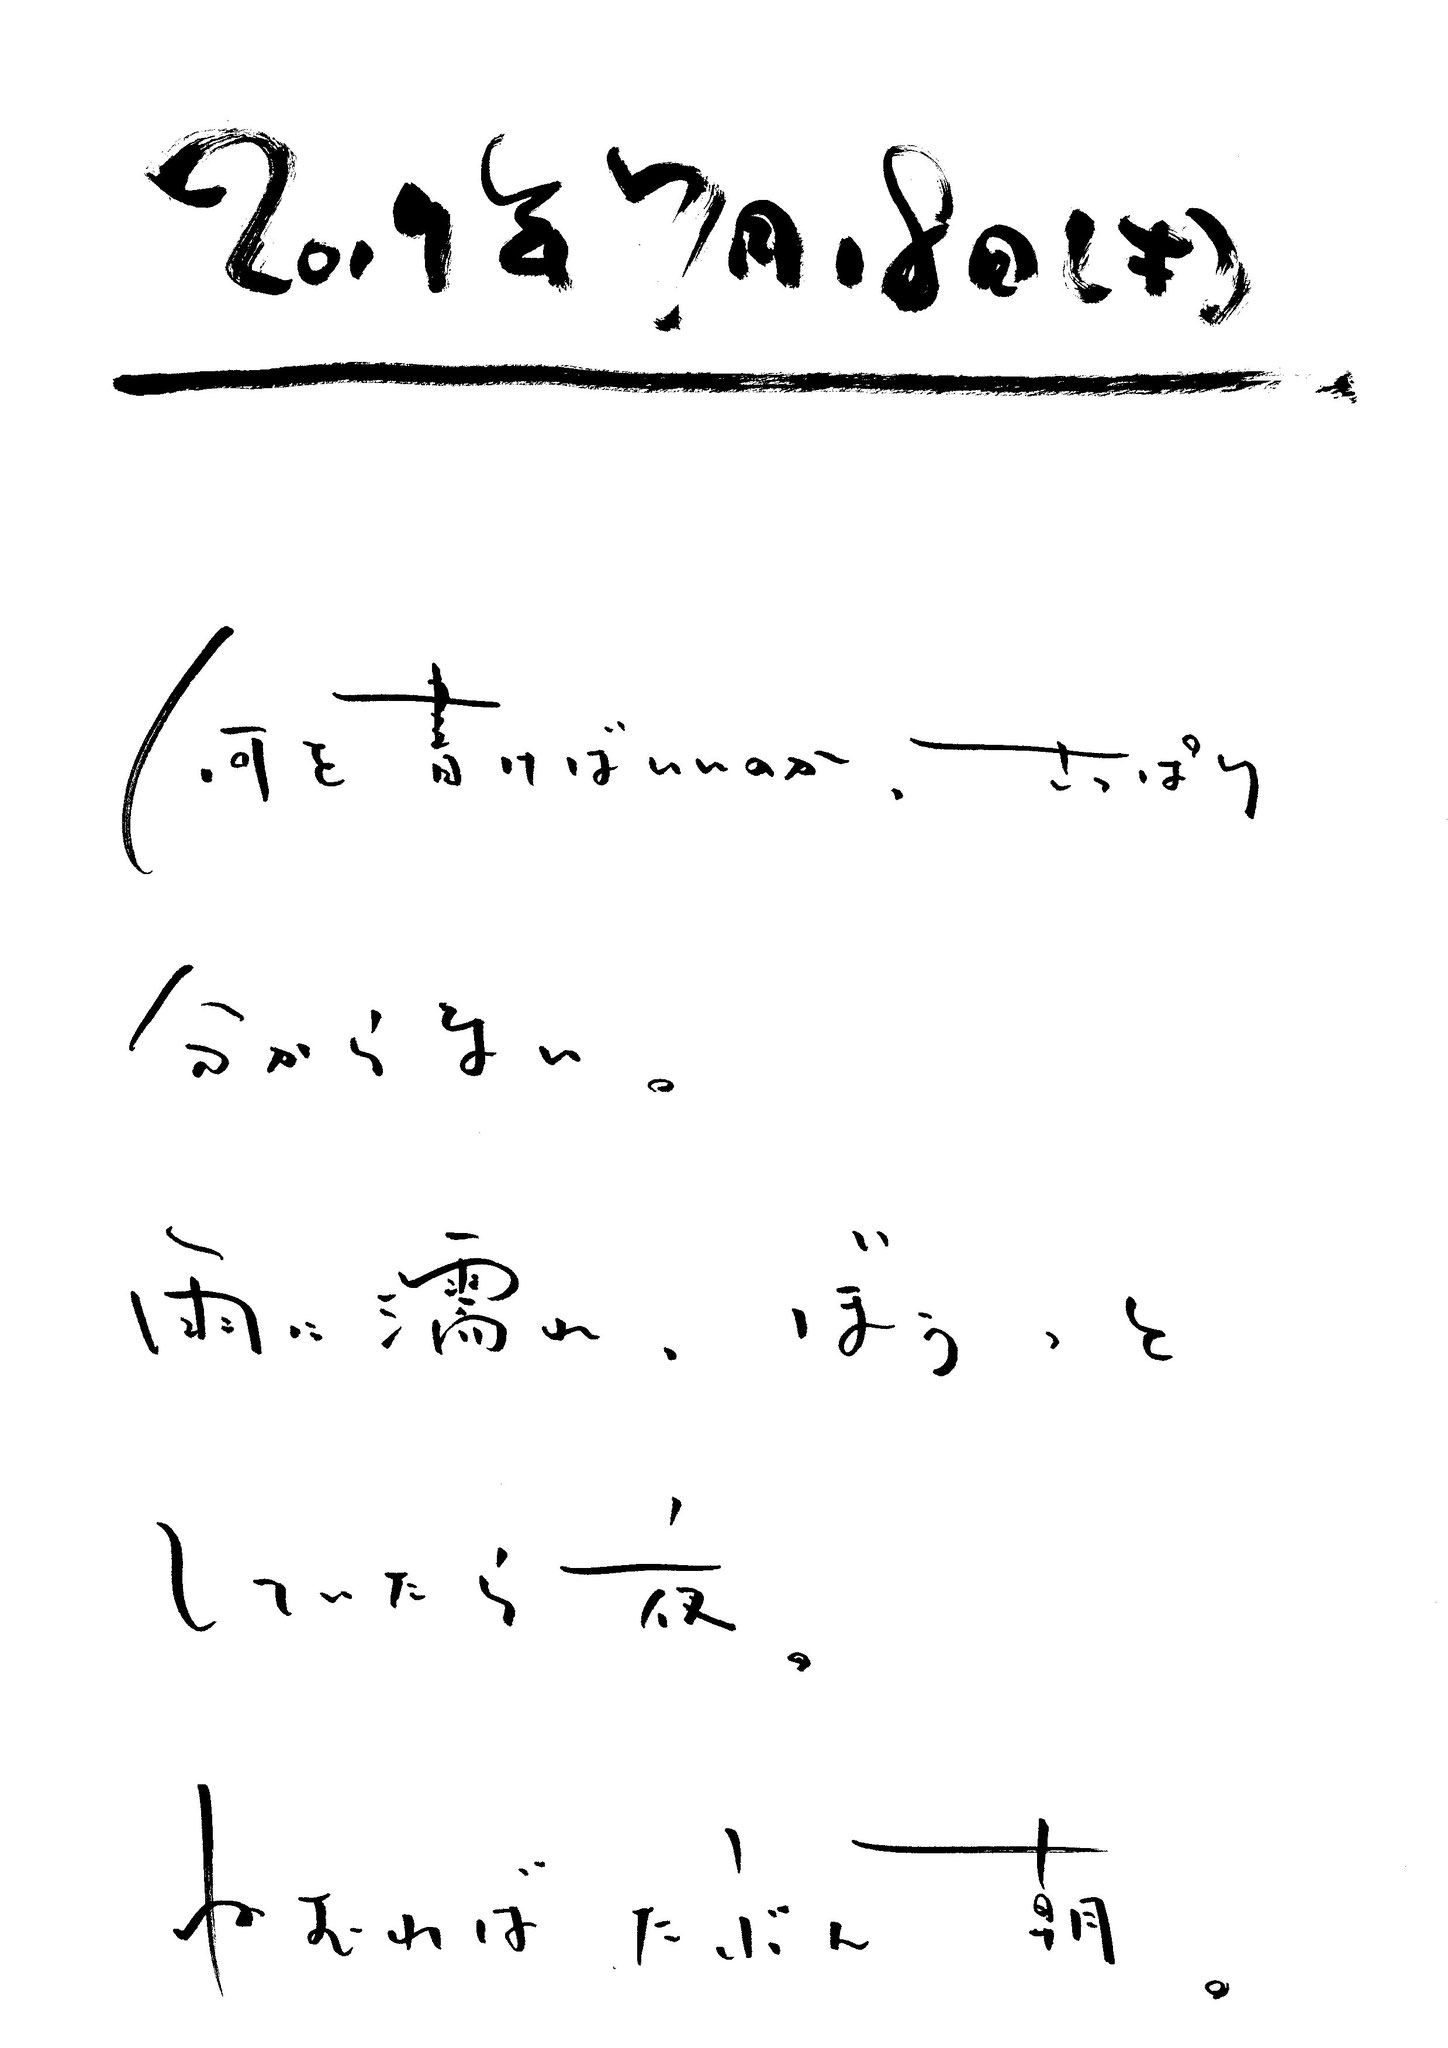 2019年7月18日(木)
何を書けばいいのか、さっぱり
分からない。
雨に濡れ、ぼうっと
していたら夜。
ねむれば たぶん 朝。